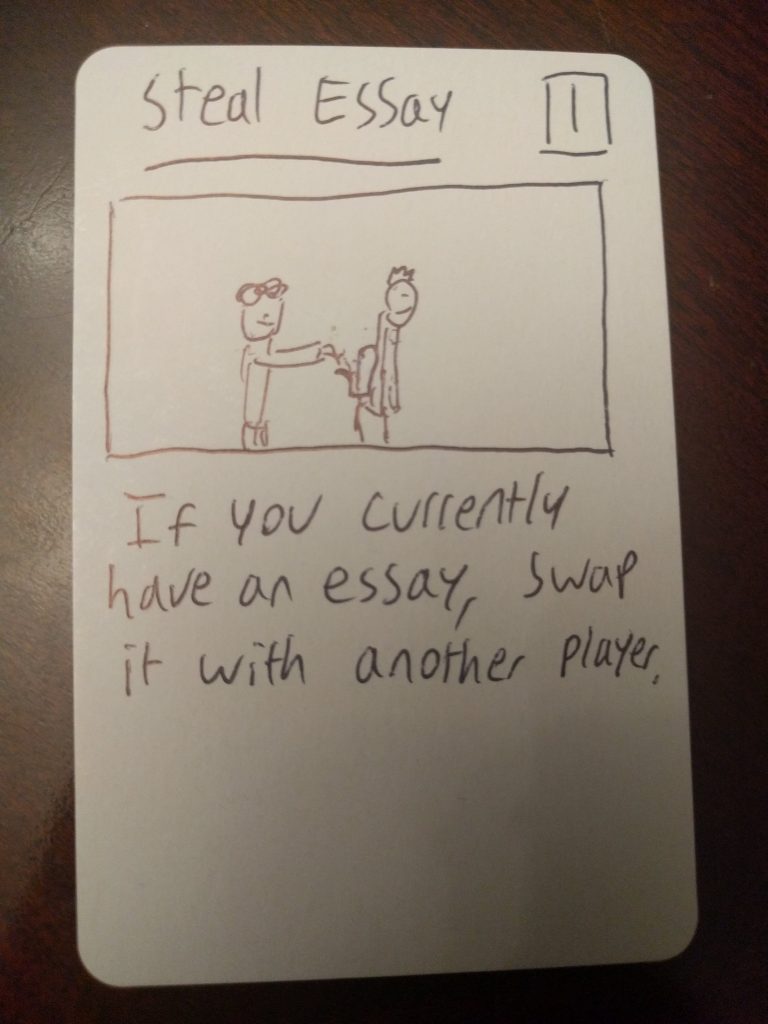 Steal Essay 1
If you currently
have an essay, swap
it with another player.